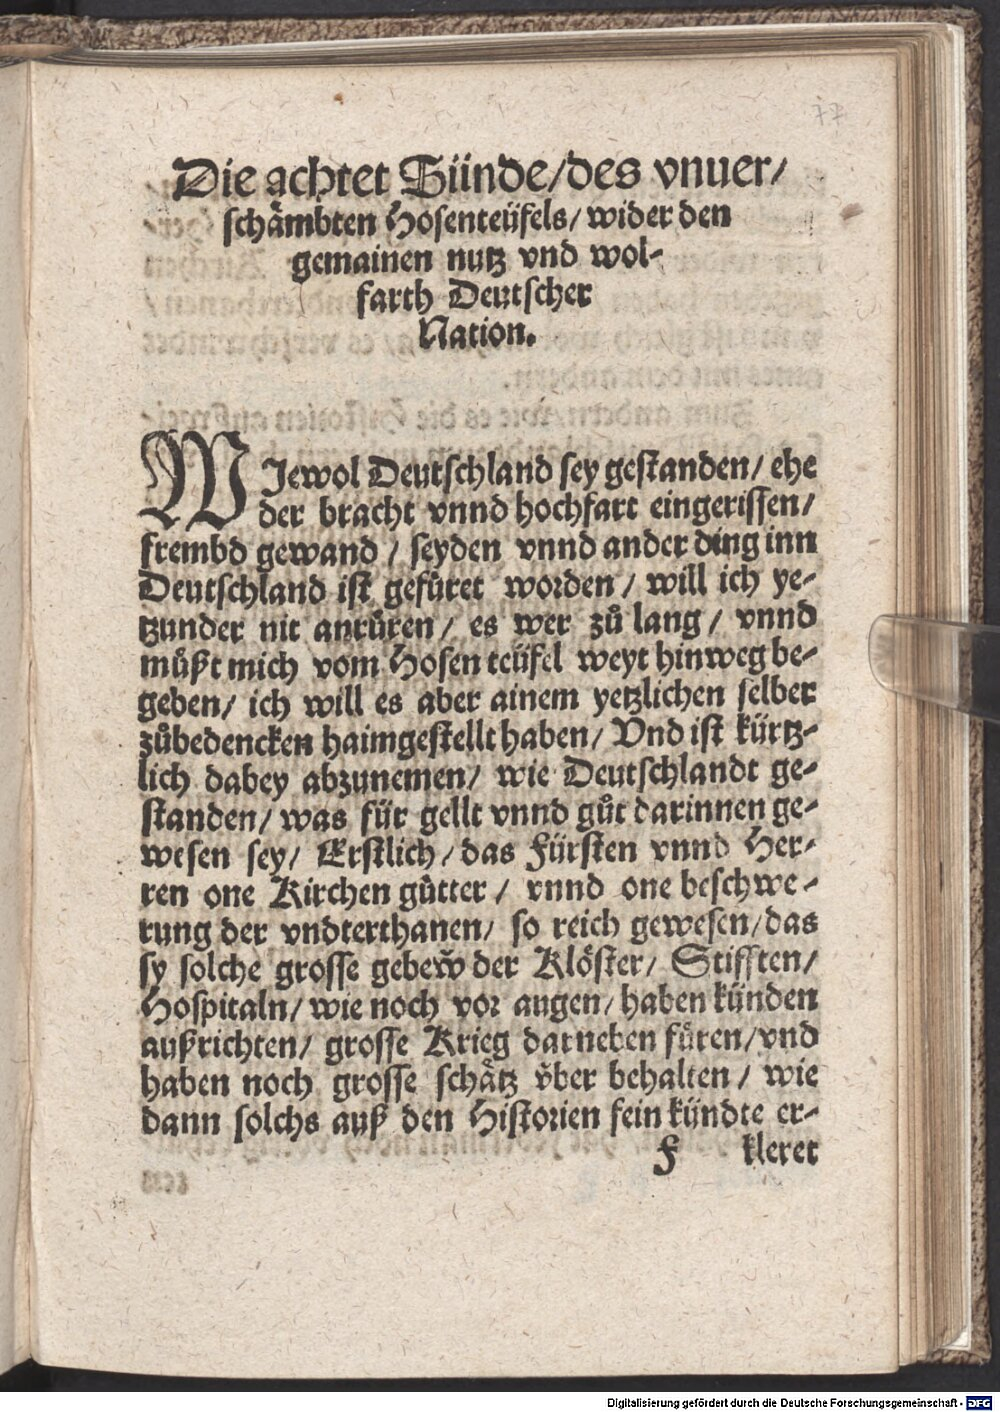 77
Die achtet Sünde/des vnuer/
schämbten Hosenteüfels/ wider den
gemainen nutz vnd wol-
farth Deutscher
Nation.
WJewol Deutschland sey gestanden/ ehe
der bracht vnnd hochfart eingerissen/
frembd gewand / seyden vnnd ander ding inn
Deutschland ist gefüret worden / will ich ye-
tzunder nit anrüren / es wer zů lang / vnnd
müßt mich vom Hosen teüfel weyt hinweg be-
geben/ ich will es aber ainem yetzlichen selber
zůbedencken haimgestellt haben/ Vnd ist kürtz-
lich dabey abzunemen/ wie Deutschlandt ge-
standen/ was für gellt vnnd gůt darinnen ge-
wesen sey/ Erstlich/ das Fürsten vnnd Her-
ren one Kirchen gütter / vnnd one beschwe-
rung der vndterthanen/ so reich gewesen/das
sy solche grosse gebew̆ der Klöster/ Stifften/
Hospitaln/ wie noch vor augen/ haben künden
außrichten/ grosse Krieg darneben füren/vnd
haben noch grosse schätz v̆ber behalten / wie
dann solchs auß den Historien fein kündte er-
F kleret
Digitalisierung gefördert durch die Deutsche Forschungsgemeinschaft - DFG